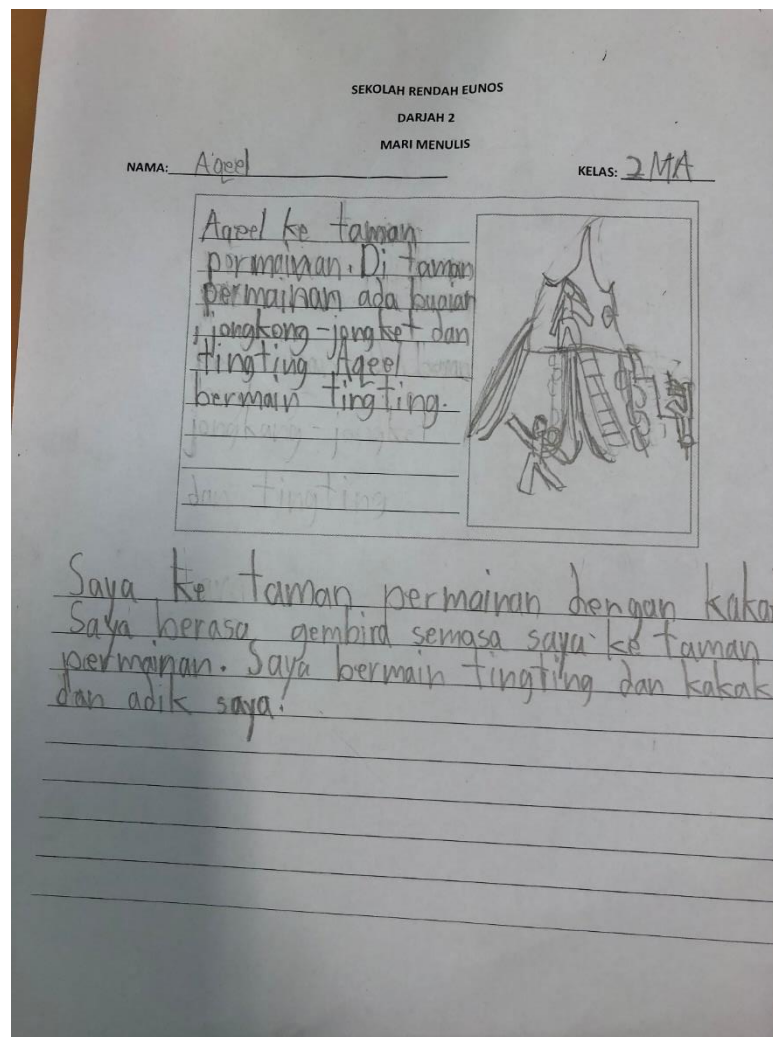 SEKOLAH RENDAH EUNOS
DARJAH 2
MARI MENULIS
NAMA: Aqeel KELAS: 2MA
Aqeel ke taman
permainan. Di taman
permainan ada buaian
, jongkong-jongket dan
tingting Aqeel
bermain tingting.
jongkang-jongket
dan tingting
Saya ke taman permainan dengan kakak
Saya berasa gembira semasa saya ke taman
permainan. Saya bermain tingting dan kakak
dan adik saya.